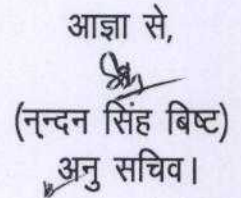 आज्ञा से,
(नन्दन सिंह बिष्ट)
अनु सचिव।